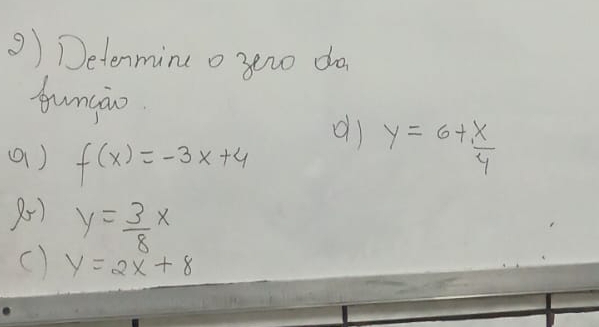 2) Determine o zero da
função.
a) f(x) = -3x+4
b) y = 3/8 x
c) y = 2x + 8
d) y = 6 + x/4